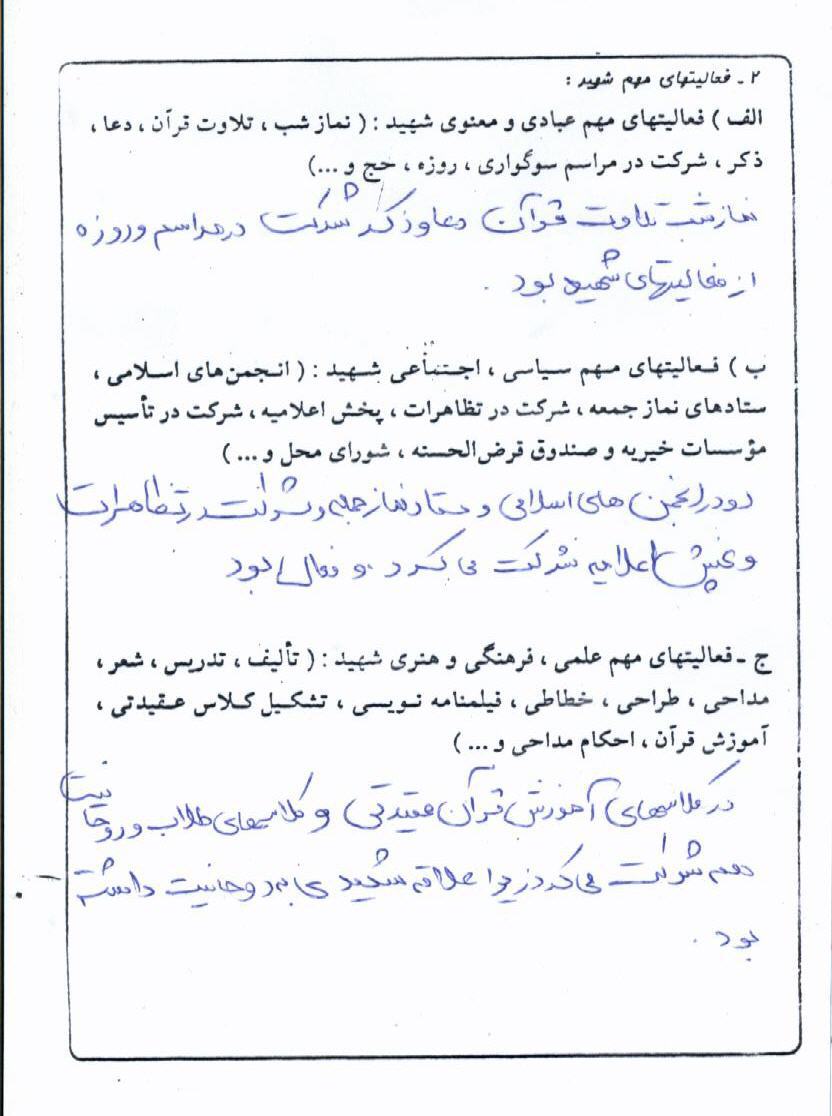 ۲ ـ فعالیتهای مهم شهید :
الف ) فعالیتهای مهم عبادی و معنوی شهید : ( نماز شب ، تلاوت قرآن ، دعا ،
ذکر ، شرکت در مراسم سوگواری ، روزه ، حج و ...)
نماز شب تلاوت قرآن دعا و ذکر شرکت در مراسم و روزه
از فعالیتهای شهید بود .
ب ) فعالیتهای مهم سیاسی ، اجتماعی شهید : ( انجمن‌های اسلامی ،
ستادهای نماز جمعه ، شرکت در تظاهرات ، پخش اعلامیه ، شرکت در تأسیس
مؤسسات خیریه و صندوق قرض‌الحسنه ، شورای محل و ... )
در انجمن های اسلامی و ستاد نماز جمعه و شرکت در تظاهرات
و پخش اعلامیه شرکت می کرد و فعال بود
ج ـ فعالیتهای مهم علمی ، فرهنگی و هنری شهید : ( تألیف ، تدریس ، شعر ،
مداحی ، طراحی ، خطاطی ، فیلمنامه نویسی ، تشکیل کلاس عقیدتی ،
آموزش قرآن ، احکام مداحی و ... )
در کلاسهای آموزش قرآن عقیدتی و کلاسهای طلاب و روحانیت
هم شرکت می کرد زیرا علاقه شدیدی به روحانیت داشته
بود .